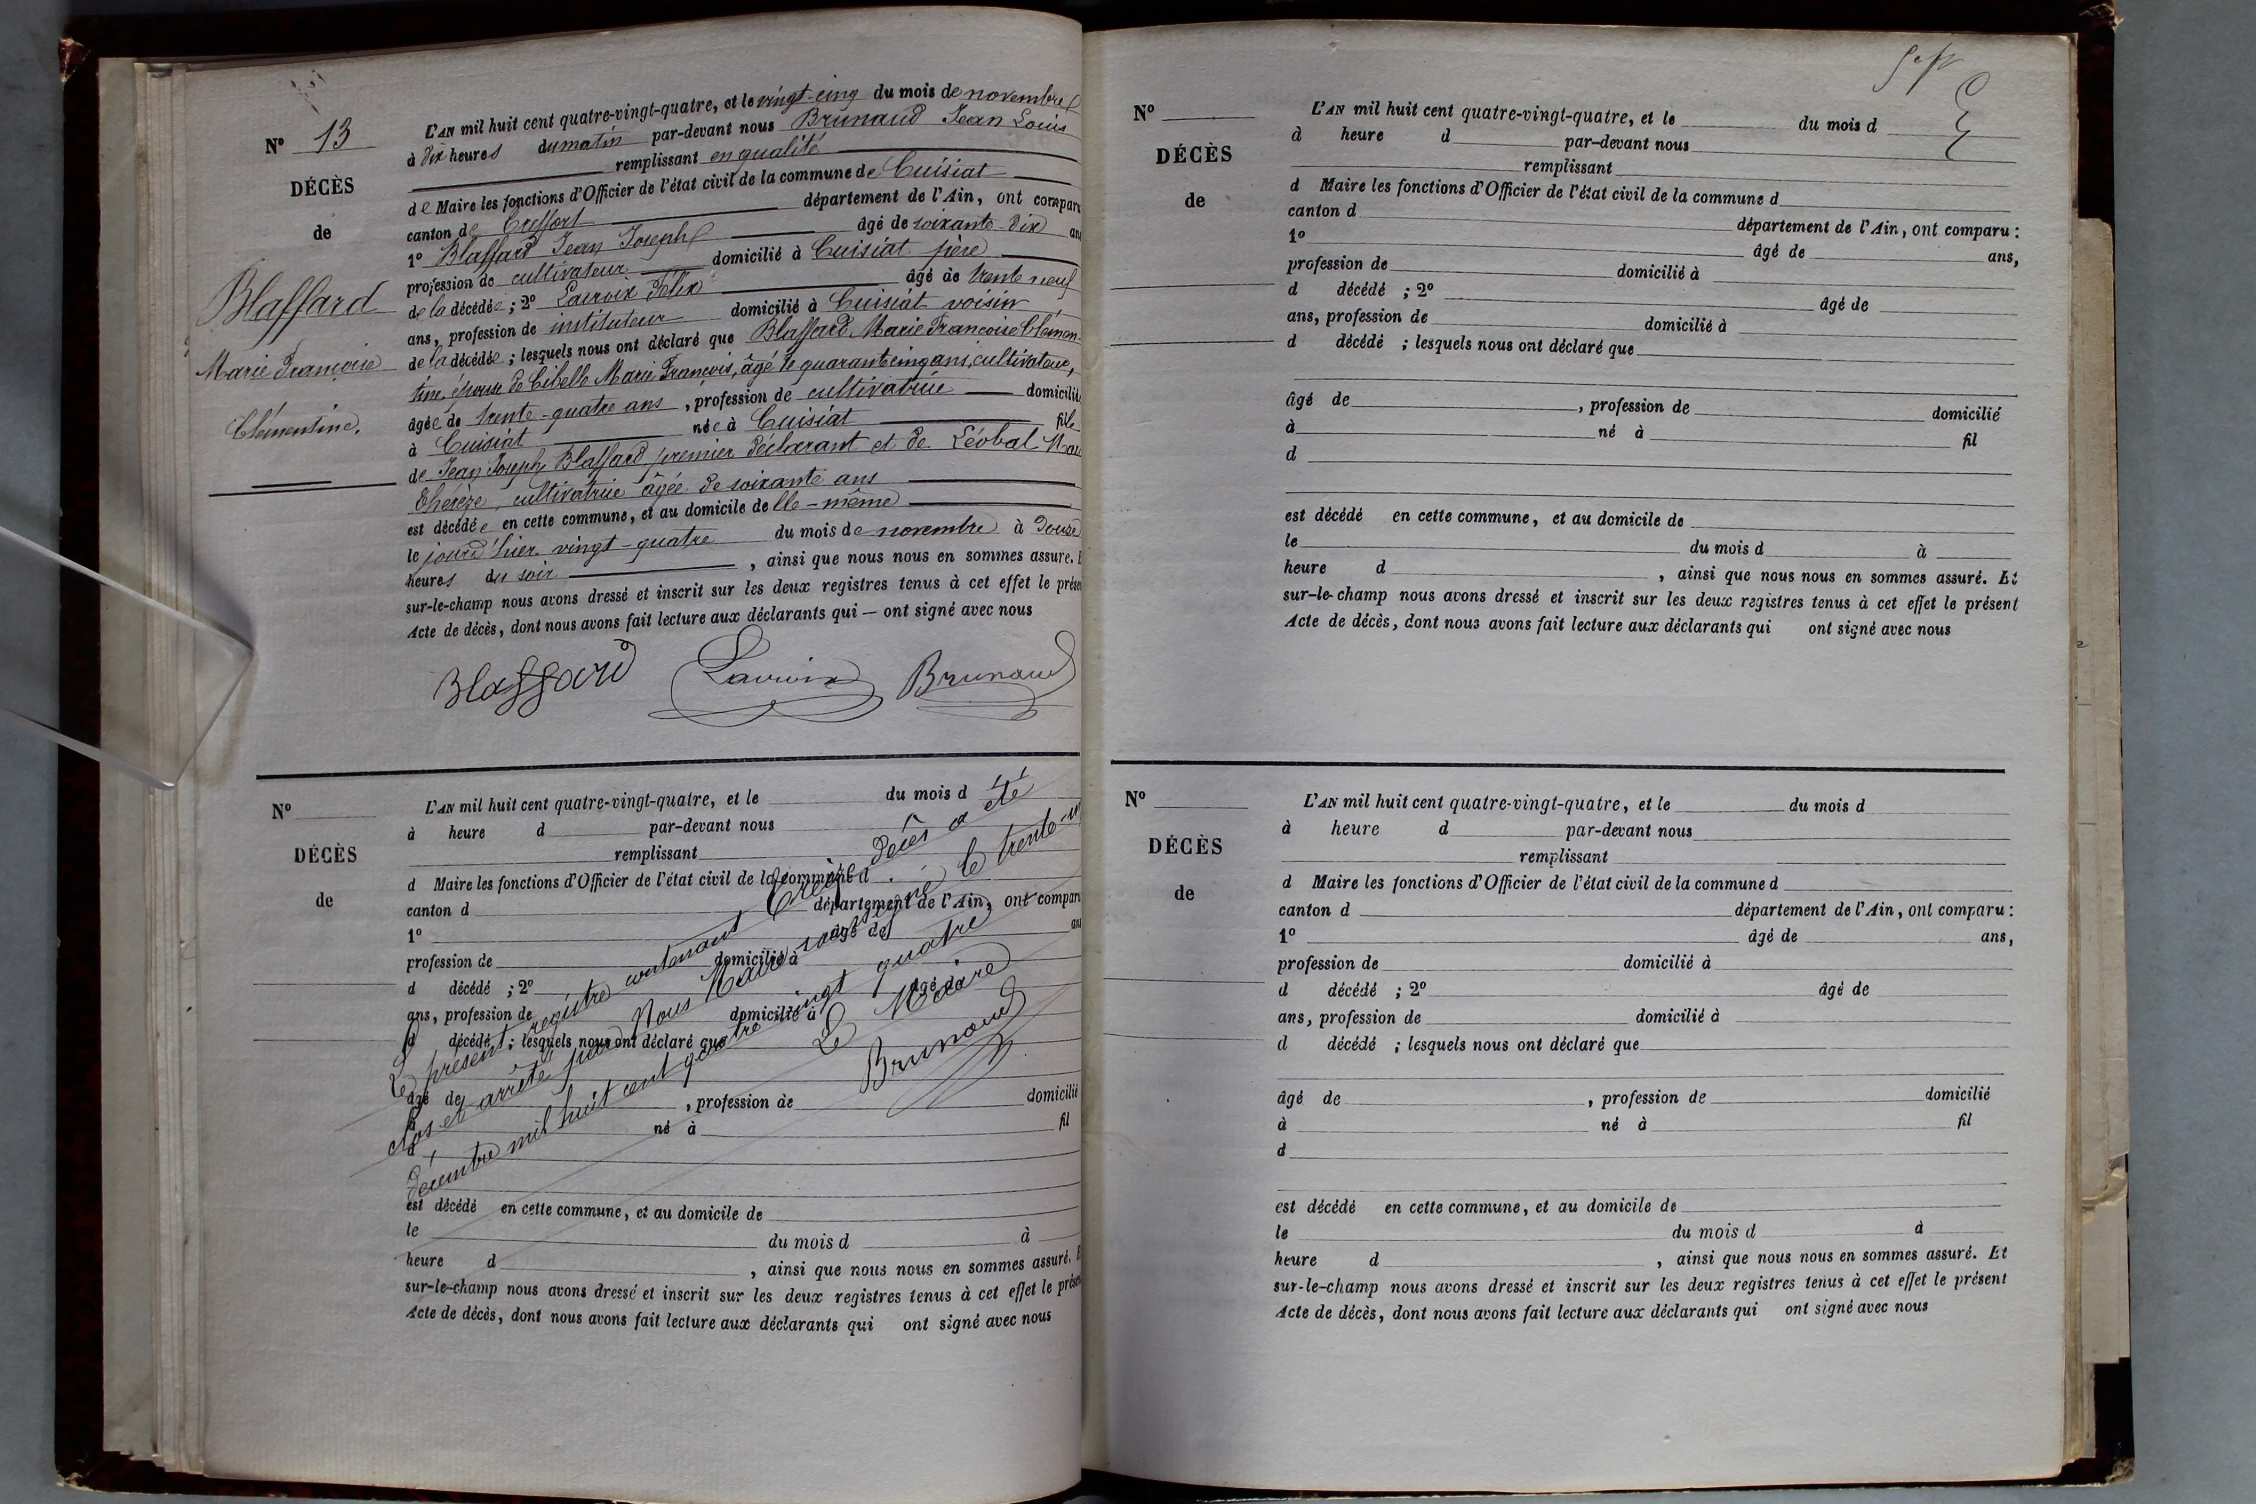 N° 13
DÉCÈS
de
Blaffard
Marie Françoise
Clémentine.
L'AN mil huit cent quatre-vingt-quatre, et le vingt-cinq du mois de novembre
à dix heures du matin par-devant nous Brunaud Jean Louis
remplissant en qualité
de Maire les fonctions d'Officier de l'état civil de la commune de Cuisiat
canton de Treffort département de l'Ain, ont comparu
1° Blaffard Jean Joseph âgé de soixante-dix ans
profession de cultivateur domicilié à Cuisiat père
de la décédée ; 2° Lacroix Félix âgé de trente neuf
ans, profession de instituteur domicilié à Cuisiat voisin
de la décédée ; lesquels nous ont déclaré que Blaffard Marie Françoise Clémen-
tine, épouse de Cibelle Marie François, âgé de quarante cinq ans, cultivateur,
âgée de trente-quatre ans, profession de cultivatrice domicilié
à Cuisiat née à Cuisiat fille
de Jean Joseph Blaffard premier déclarant et de Léobal Marie
Thérèze, cultivatrice âgée de soixante ans
est décédée en cette commune, et au domicile de elle-même
le jour d'hier vingt-quatre du mois de novembre à douze
heures du soir, ainsi que nous nous en sommes assuré. E
sur-le-champ nous avons dressé et inscrit sur les deux registres tenus à cet effet le prése
Acte de décès, dont nous avons fait lecture aux déclarants qui — ont signé avec nous
Blaffard Lacroix Brunaud
N°
DÉCÈS
de
L'AN mil huit cent quatre-vingt-quatre, et le du mois d
à heure d par-devant nous
remplissant
d Maire les fonctions d'Officier de l'état civil de la commune d
canton d département de l'Ain, ont comparu
1° âgé de ans
profession de domicilié à
d décédé ; 2° âgé de
ans, profession de domicilié à
d décédé ; lesquels nous ont déclaré que
âgé de , profession de domicilié
à né à fil
d
est décédé en cette commune, et au domicile de
le du mois d à
heure d , ainsi que nous nous en sommes assuré. E
sur-le-champ nous avons dressé et inscrit sur les deux registres tenus à cet effet le prése
Acte de décès, dont nous avons fait lecture aux déclarants qui ont signé avec nous
Le présent registre contenant treize décès a été
clos et arrêté par Nous Maire soussigné le trente-un
décembre mil huit cent quatre vingt quatre
Le Maire
Brunaud
N°
DÉCÈS
de
L'AN mil huit cent quatre-vingt-quatre, et le du mois d
à heure d par-devant nous
remplissant
d Maire les fonctions d'Officier de l'état civil de la commune d
canton d département de l'Ain, ont comparu :
1° âgé de ans,
profession de domicilié à
d décédé ; 2° âgé de
ans, profession de domicilié à
d décédé ; lesquels nous ont déclaré que
âgé de , profession de domicilié
à né à fil
d
est décédé en cette commune, et au domicile de
le du mois d à
heure d , ainsi que nous nous en sommes assuré. Et
sur-le-champ nous avons dressé et inscrit sur les deux registres tenus à cet effet le présent
Acte de décès, dont nous avons fait lecture aux déclarants qui ont signé avec nous
N°
DÉCÈS
de
L'AN mil huit cent quatre-vingt-quatre, et le du mois d
à heure d par-devant nous
remplissant
d Maire les fonctions d'Officier de l'état civil de la commune d
canton d département de l'Ain, ont comparu :
1° âgé de ans,
profession de domicilié à
d décédé ; 2° âgé de
ans, profession de domicilié à
d décédé ; lesquels nous ont déclaré que
âgé de , profession de domicilié
à né à fil
d
est décédé en cette commune, et au domicile de
le du mois d à
heure d , ainsi que nous nous en sommes assuré. Et
sur-le-champ nous avons dressé et inscrit sur les deux registres tenus à cet effet le présent
Acte de décès, dont nous avons fait lecture aux déclarants qui ont signé avec nous